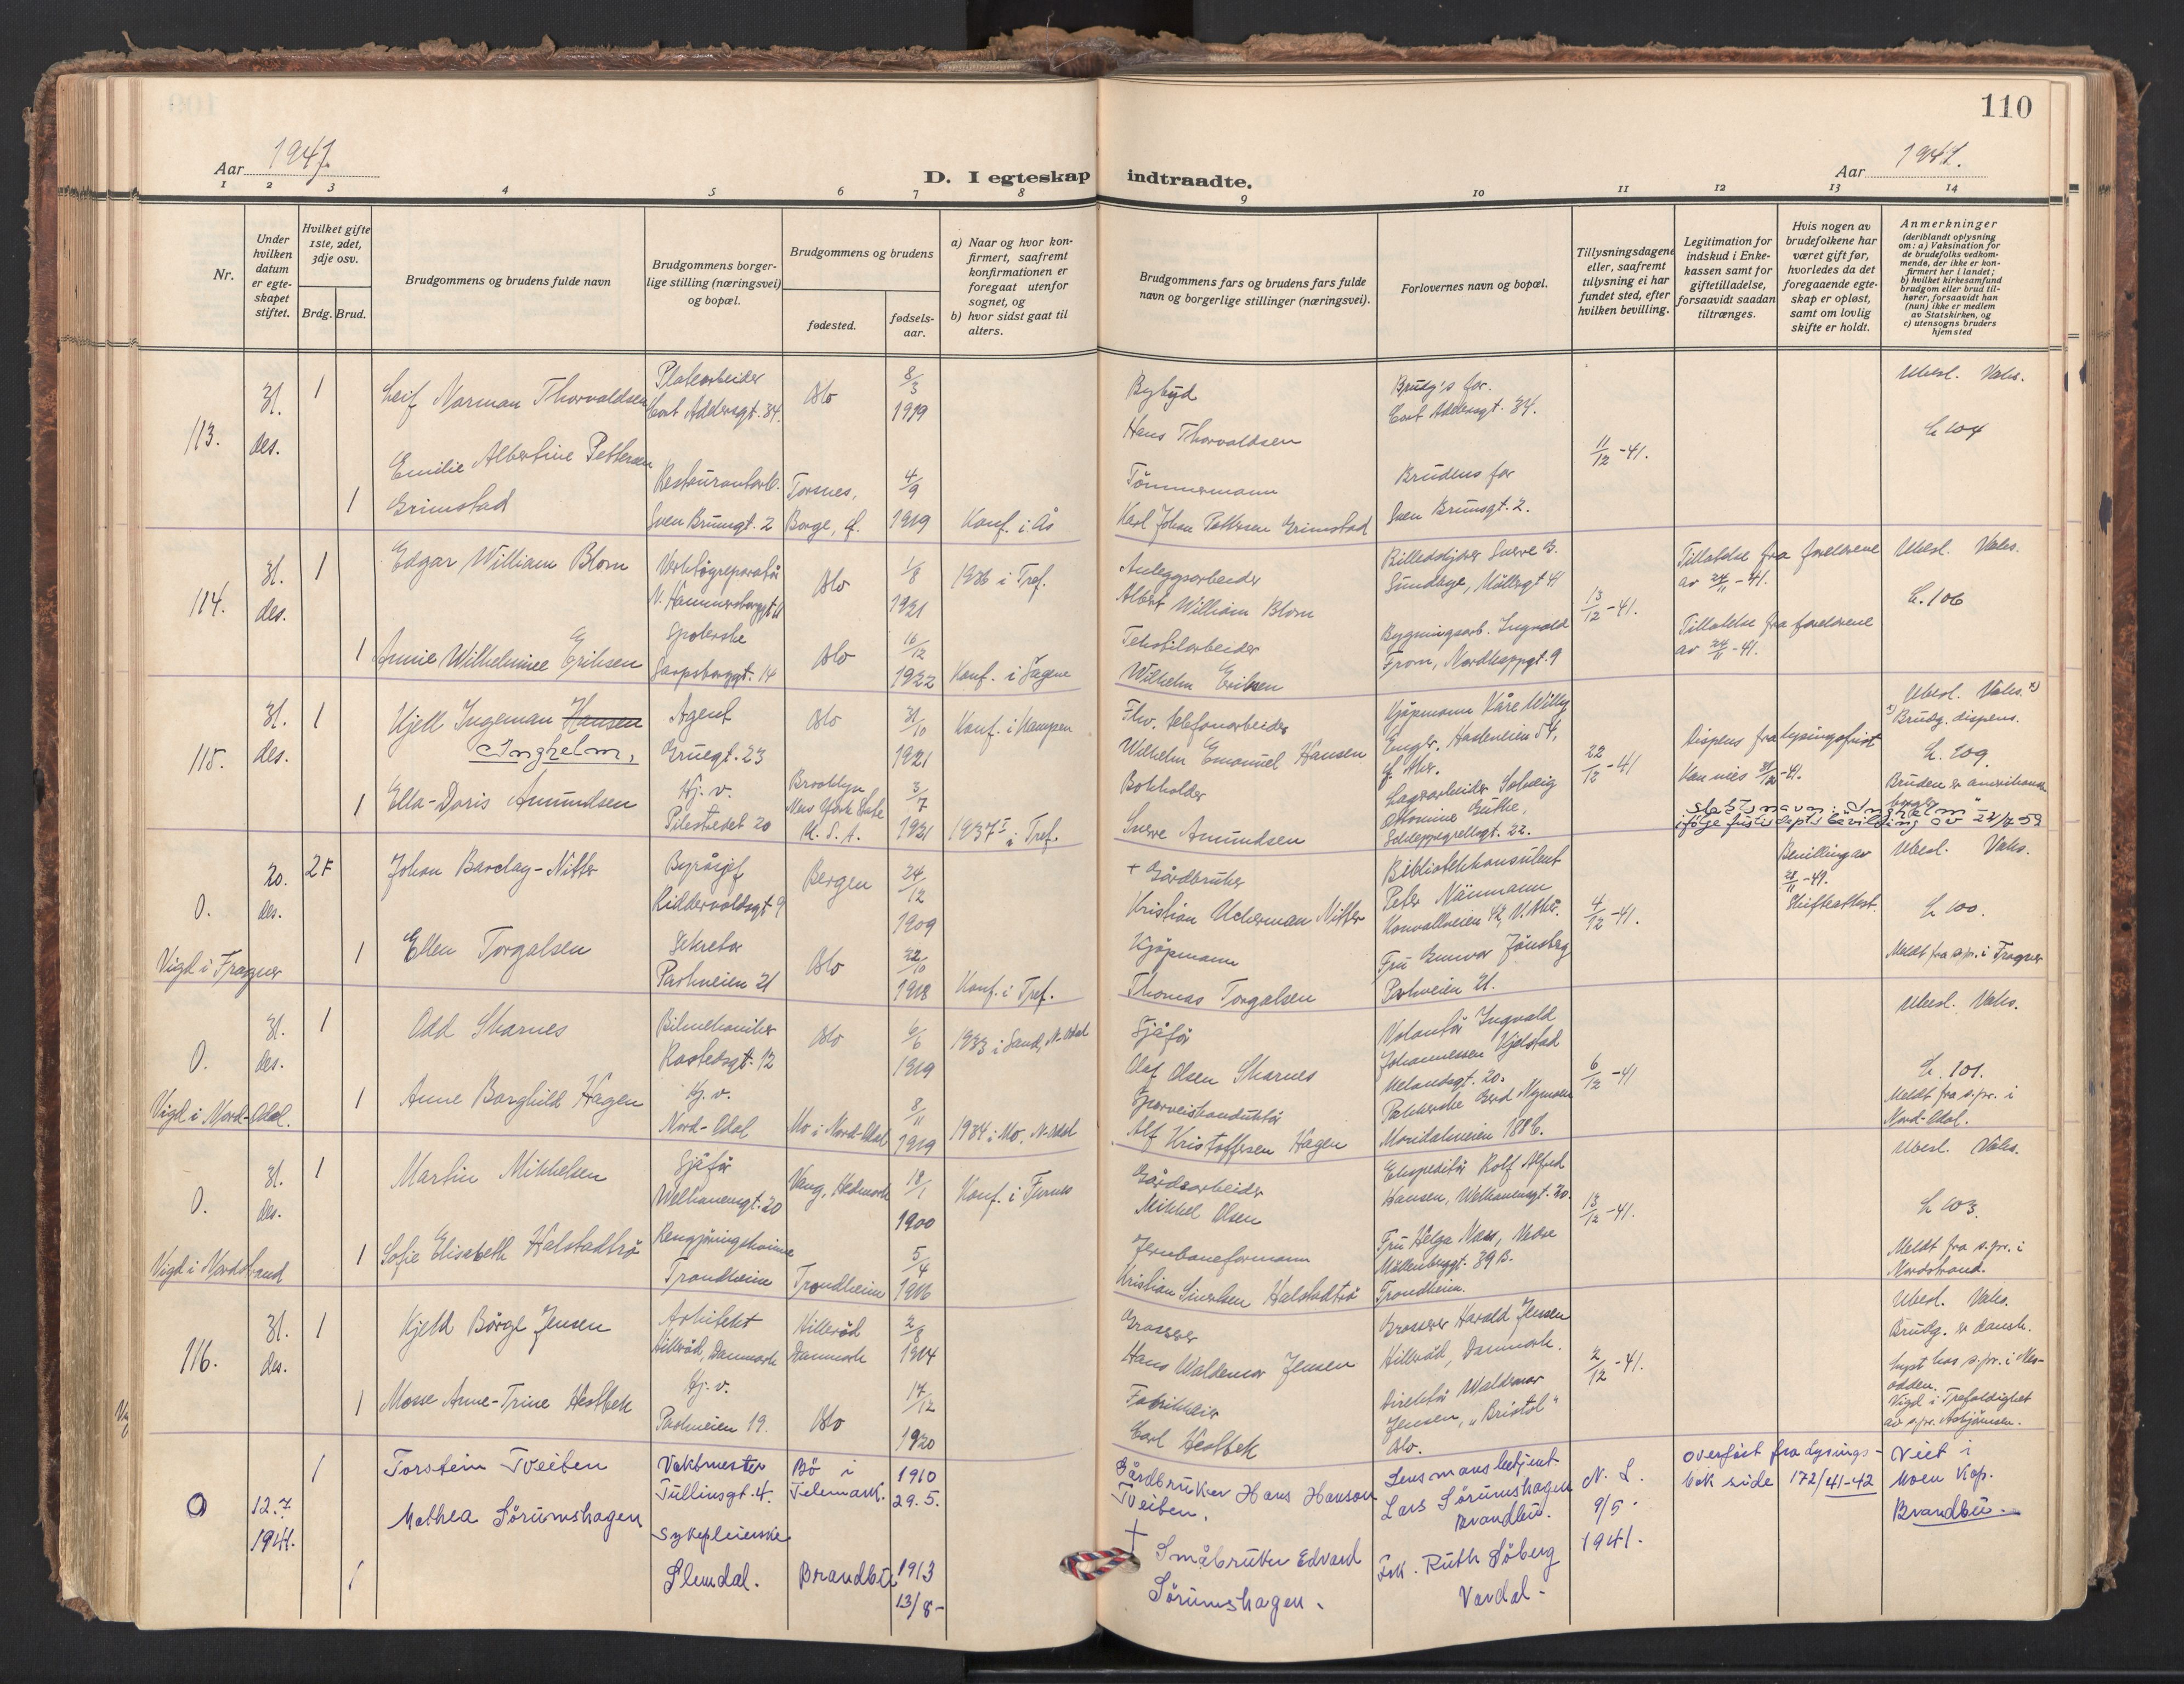 110
Aar 1941.
D. I egteskap indtraadte.
Aar 1941.
1 2 3 4 5 6 7 8 9 10 11 12 13 14
Nr.
Under hvilken datum er egteskapet stiftet.
Hvilket gifte 1ste, 2det, 3dje osv.
Brdg. Brud.
Brudgommens og brudens fulde navn
Brudgommens borgerlige stilling (næringsvei) og bopæl.
Brudgommens og brudens
fødested.
fødselsaar.
a) Naar og hvor konfirmert, saafremt konfirmationen er foregaat utenfor sognet, og
b) hvor sidst gaat til alters.
Brudgommens fars og brudens fars fulde navn og borgerlige stillinger (næringsvei).
Forlovernes navn og bopæl.
Tillysningsdagene eller, saafremt tillysning ei har fundet sted, efter hvilken bevilling.
Legitimation for indskud i Enkekassen samt for giftetilladelse, forsaavidt saadan tiltrænges.
Hvis nogen av brudefolkene har været gift før, hvorledes da det foregaaende egteskap er opløst, samt om lovlig skifte er holdt.
Anmerkninger
(deriblandt oplysning om: a) Vaksination for de brudefolks vedkommende, der ikke er konfirmert her i landet; b) hvilket kirkesamfund brudgom eller brud tilhører, forsaavidt han (hun) ikke er medlem av Statskirken, og c) utensogns bruders hjemsted
113. 31. des. 1 Leif Norman Thorvaldsen
Platearbeider
Cort Adelersgt. 34.
Oslo
8/3 1919
Hans Thorvaldsen
Brudg's far.
Cort Adelersgt. 34.
11/12-41.
Ubesl. Vaks.
L 104
1 Emilie Albertine Pettersen
Grimstad
Restaurantarb.
Sven Bruunsgt. 2
Torsnes,
Borge, f.
4/9 1919
Konf. i Ås
Tømmermann
Karl Johan Pettersen Grimstad
Brudens far
Sven Bruunsgt. 2.
114. 31. des. 1 Edgar William Blom
Verktøyreparatør
N. Hammersborggt. 11
Oslo
1/8 1921
1936 i Tref.
Anleggsarbeider
Albert William Blom
Sverre G.
Sundbye, Møllergt 41
13/12-41.
Tillatelse fra foreldrene
av 24/11-41.
Ubesl. Vaks.
L. 106
1 Annie Wilhelmine Eriksen
Spolerske
Sarpsborggt. 14
Oslo
16/12 1922
Konf. i Sagene
Tekstilarbeider
Wilhelm Eriksen
Bygningsarb. Ingvald
From, Nordkappgt. 9
Tillatelse fra foreldrene
av 24/11-41.
115. 31. des. 1 Kjell Ingeman Hansen
Inghelm,
Agent
Gruegt. 23
Oslo
31/10 1921
Konf. i Kampen
Fhv. telefonarbeider
Wilhelm Emanuel Hansen
Kjøpmann Kåre Willy
Engh.
22/12-41
Dispens fra lysingsfrist
Kan vies 31/12-41.
Ubesl. Vaks. x)
x) Brudg. dispens.
L. 109
1 Ella-Doris Amundsen
Hj. v.
Pilestredet 20
Brooklyn
New York State
U. S. A.
3/7 1921
1937 i Tref.
Bokholder
Sverre Amundsen
Lagerarbeider Solveig
Schleppegrellsgt. 22.
Bruden er amerikansk
borger
Slektsnavn: "Inghelm"
ifølge justisdepts bevilling av 22/7 52
O. 20. des. 2 F Johan Barclay-Nitter
Byråsjef
Riddervoldsgt 9
Bergen
24/12 1909
+ Gårdbruker
Kristian Uckerman Nitter
Bibliotekkonsulent
Peter Naumann
Konvallveien 42, V. Aker.
4/12-41.
Bevilling av
28/11-41.
Skifteattest.
Ubesl. Vaks.
L 100.
Vigd i Frogner
1 Ellen Torgalsen
Sekretær
Parkveien 21
Oslo
22/10 1918
Konf. i Tref.
Kjøpmann
Thomas Torgalsen
Fru Gunvor Jønsberg
Parkveien 21.
Meldt fra s.pr. i Frogner
O. 31. des. 1 Odd Skarnes
Bilmekaniker
Rostedsgt. 12
Oslo
6/6 1919
1933 i Sand, N-Odal
Sjåfør
Olaf Olsen Skarnes
Volontør Ingvald
Johannessen Kjølstad
Uelandsgt. 20.
6/12-41
Ubesl. Vaks.
L. 101.
Vigd i Nord-Odal.
1 Anne Borghild Hagen
Hj. v.
Nord-Odal
Mo i Nord-Odal
8/11 1919
1934 i Mo, N-Odal
Sporveiskonduktør
Alf Kristoffersen Hagen
Pakkerske Gerd Nymoen
Maridalsveien 188 B.
Meldt fra s.pr. i
Nord-Odal.
O. 31. des. 1 Martin Mikkelsen
Sjåfør
Welhavensgt. 20
Vang, Hedmark
18/1 1900
Konf. i Furnes
Gårdsarbeider
Mikkel Olsen
Ekspeditør Rolf Alfred
Hansen, Welhavensgt. 20.
13/12-41.
Ubesl. Vaks.
L 103.
Vigd i Nordstrand
1 Sofie Elisabeth Halstadtrø
Rengjøringskvinne
Trondheim
Trondheim
5/4 1916
Jernbaneformann
Kristian Sivertsen Halstadtrø
Fru Helga Næss, Nedre
Møllenberggt. 39 B.
Trondheim.
Meldt fra s.pr. i
Nordstrand.
116. 31. des. 1 Kjeld Børge Jensen
Arkitekt
Hillerød, Danmark
Hillerød
Danmark
2/8 1914
Grosserer
Hans Waldemar Jensen
Grosserer Harald Jensen
Hillerød, Danmark.
2/12-41.
Ubesl. Vaks.
Brudg. er dansk.
Lyst hos s.pr. i Nesodden.
1 Mosse Anne-Trine Hestbek
Hj. v.
Parkveien 19.
Oslo
17/12 1920
Fabrikkeier
Carl Hestbek
Direktør Waldemar
Jensen, "Bristol"
Oslo.
Vigd i Trefoldighet
av s.pr. Asbjørnsen.
O 12.7. 1941. 1 Torstein Tveiten
Vaktmester
Tullinsgt. 4.
Bø i
Telemark.
1910
29. 5.
Gårdbruker Hans Hanson
Tveiten.
Lensmansbetjent
Lars Sørumshagen
Brandbu.
N. L.
9/5.
1941.
Overført fra Lysings-
bok side 172/41-42
Viet i
Moen kap.
Brandbu.
1 Mathea Sørumshagen
Sykepleierske
Slemdal.
Brandbu
1913
13/8-
+ Småbruker Edvard
Sørumshagen.
Frk. Ruth Søberg
Vardal-